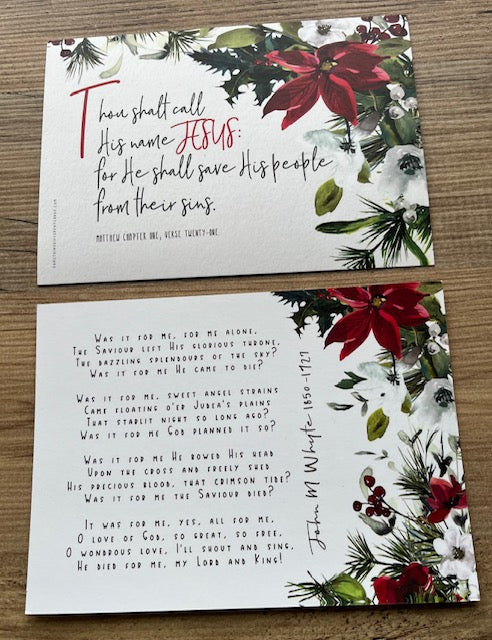 Thou shalt call
His name JESUS:
for He shall save His people
from their sins.
MATTHEW CHAPTER ONE, VERSE TWENTY-ONE.
WAS IT FOR ME, FOR ME ALONE,
THE SAVIOUR LEFT HIS GLORIOUS THRONE,
THE DAZZLING SPLENDOURS OF THE SKY?
WAS IT FOR ME HE CAME TO DIE?
WAS IT FOR ME, SWEET ANGEL STRAINS
CAME FLOATING O'ER JUDEA'S PLAINS
THAT STARLIT NIGHT SO LONG AGO?
WAS IT FOR ME GOD PLANNED IT SO?
WAS IT FOR ME HE BOWED HIS HEAD
UPON THE CROSS AND FREELY SHED
HIS PRECIOUS BLOOD, THAT CRIMSON TIDE?
WAS IT FOR ME THE SAVIOUR DIED?
IT WAS FOR ME, YES, ALL FOR ME,
O LOVE OF GOD, SO GREAT, SO FREE,
O WONDROUS LOVE, I'LL SHOUT AND SING,
HE DIED FOR ME, MY LORD AND KING!
John M Whyte 1850-1927